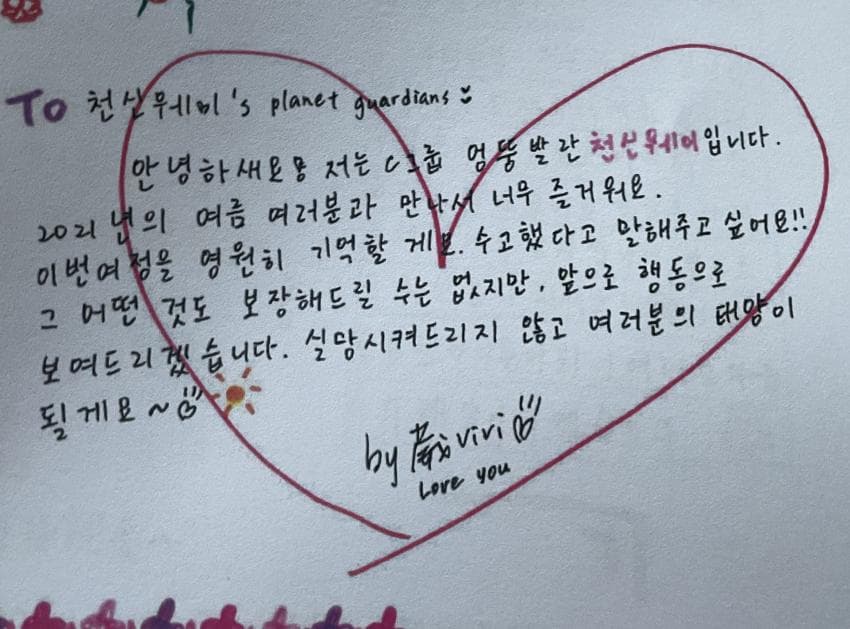 To 천신웨이's planet guardians
안녕하새요용 저는 C그룹 엉뚱발란 천신웨이입니다.
2021년의 여름 여러분과 만나서 너무 즐거워요.
이번여정을 영원히 기억할 게요. 수고했다고 말해주고 싶어요!!
그 어떤 것도 보장해드릴 수는 없지만, 앞으로 행동으로
보여드리겠습니다. 실망시켜드리지 않고 여러분의 태양이
될게요~
by vivi
Love you